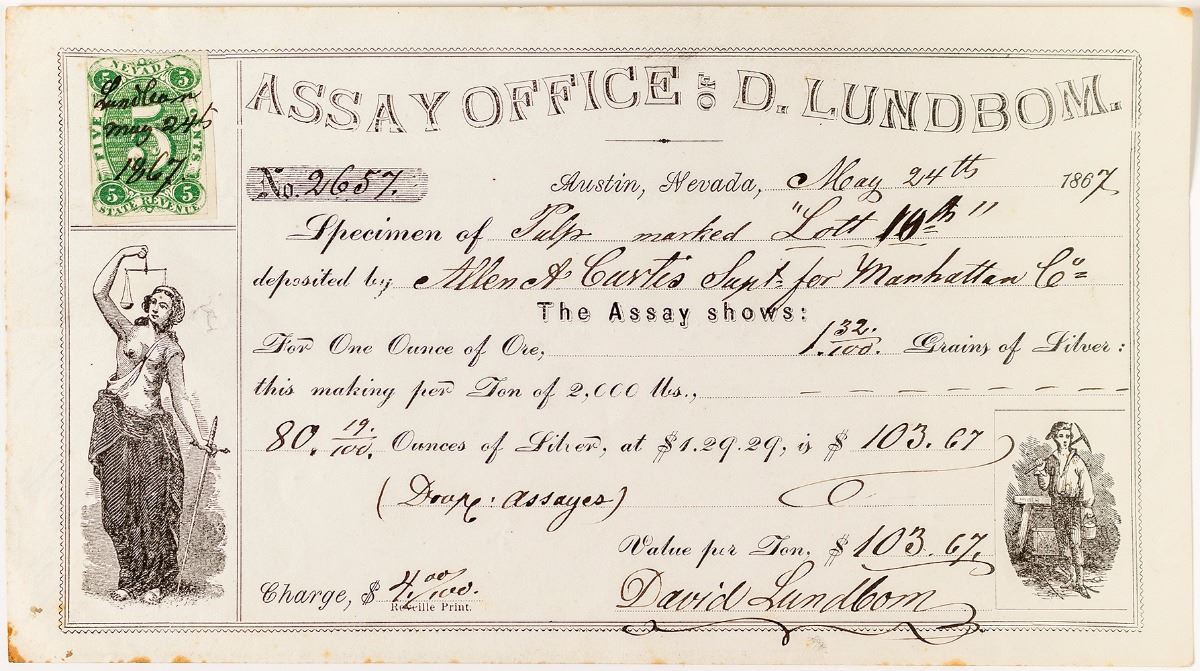 NEVADA
5 5
Lundbom
May 24th
1867
FIVE CENTS
5
5 5
STATE REVENUE
ASSAY OFFICE OF D. LUNDBOM.
No. 2657.
Austin, Nevada, May 24th 1867
Specimen of Pulp marked "Lott 10th"
deposited by Allen A Curtis Supt. for Manhattan Co
The Assay shows:
For One Ounce of Ore, 1. 32/100. Grains of Silver:
this making per Ton of 2,000 lbs.,
80. 19/100. Ounces of Silver, at $1.29.29, is $ 103.67
assayes)
Value per Ton, $ 103.67.
Charge, $ 4,00/100.
Reveille Print.
David Lundbom